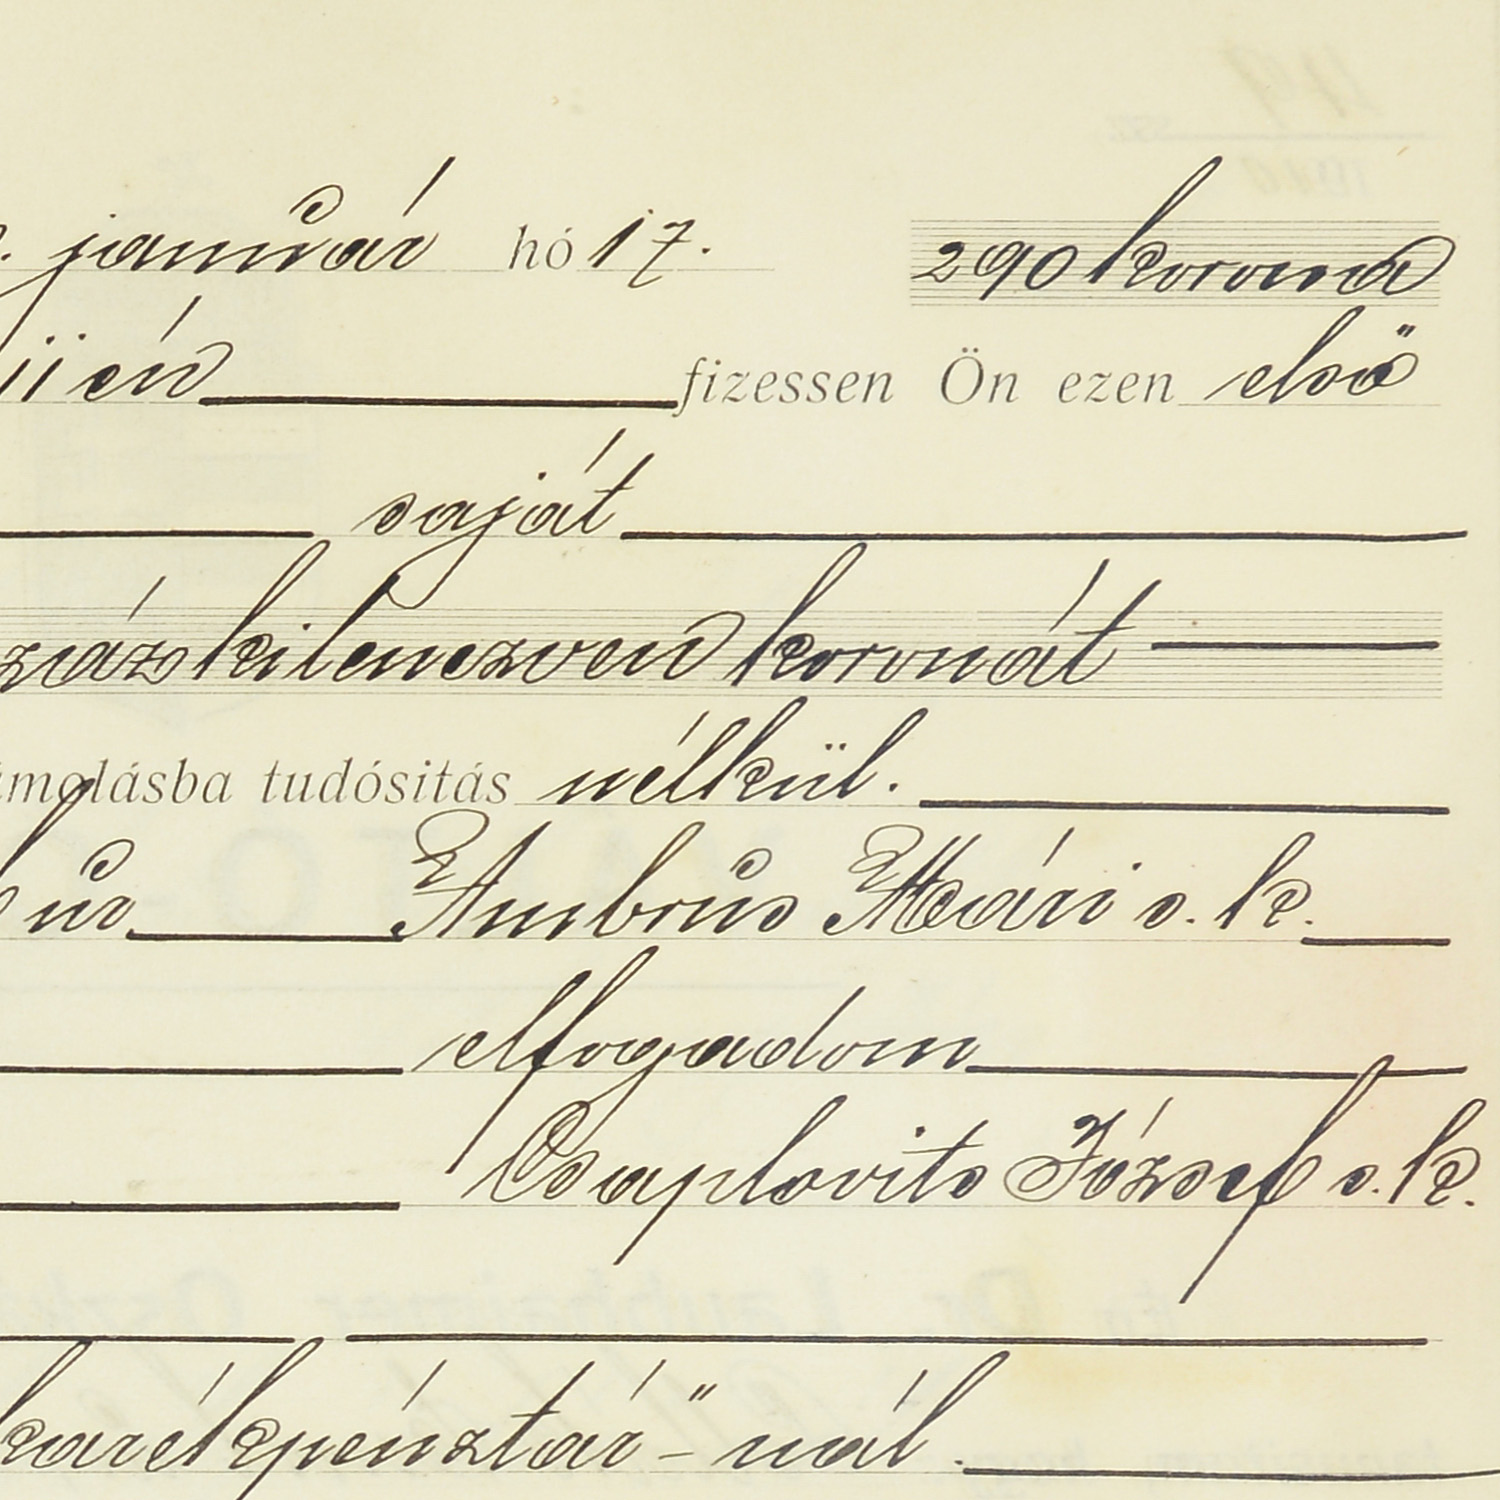 január hó 17. 290 korona
én fizessen Ön ezen első
saját
száz kilenczven koronát
ámolásba tudósitás nélkül.
úr Ambrus Mári s. k.
elfogadom
Csaplovits József s. k.
karékpénztár"-nál.